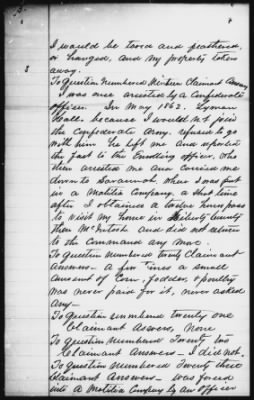 I would be tarred and feathered,
or hanged, and my property taken
away.
To Question Numbered Nineteen Claimant Answers
I was once arrested by a Confederate
officer. In May 1862. Lyman
Hall. because I would not join
the Confederate Army. refused to go
with him he left me and reported
the fact to the Enrolling officer. She
then arrested me and carried me
down to Savannah. where I was put
in a Militia Company, a short time
after I obtained a twelve hours pass
to visit my home in Liberty County
then McIntosh and did not return
to the Command any more.
To Question numbered twenty Claimant
Answers — a few times a small
amount of Corn, fodder, & poultry
was never paid for it, never asked
any —
To Question numbered twenty one
Claimant Answers, None
To Question Numbered Twenty two
Claimant Answers — I did not.
To Question Numbered Twenty three
Claimant Answers — was forced
into a Militia Company by an officer